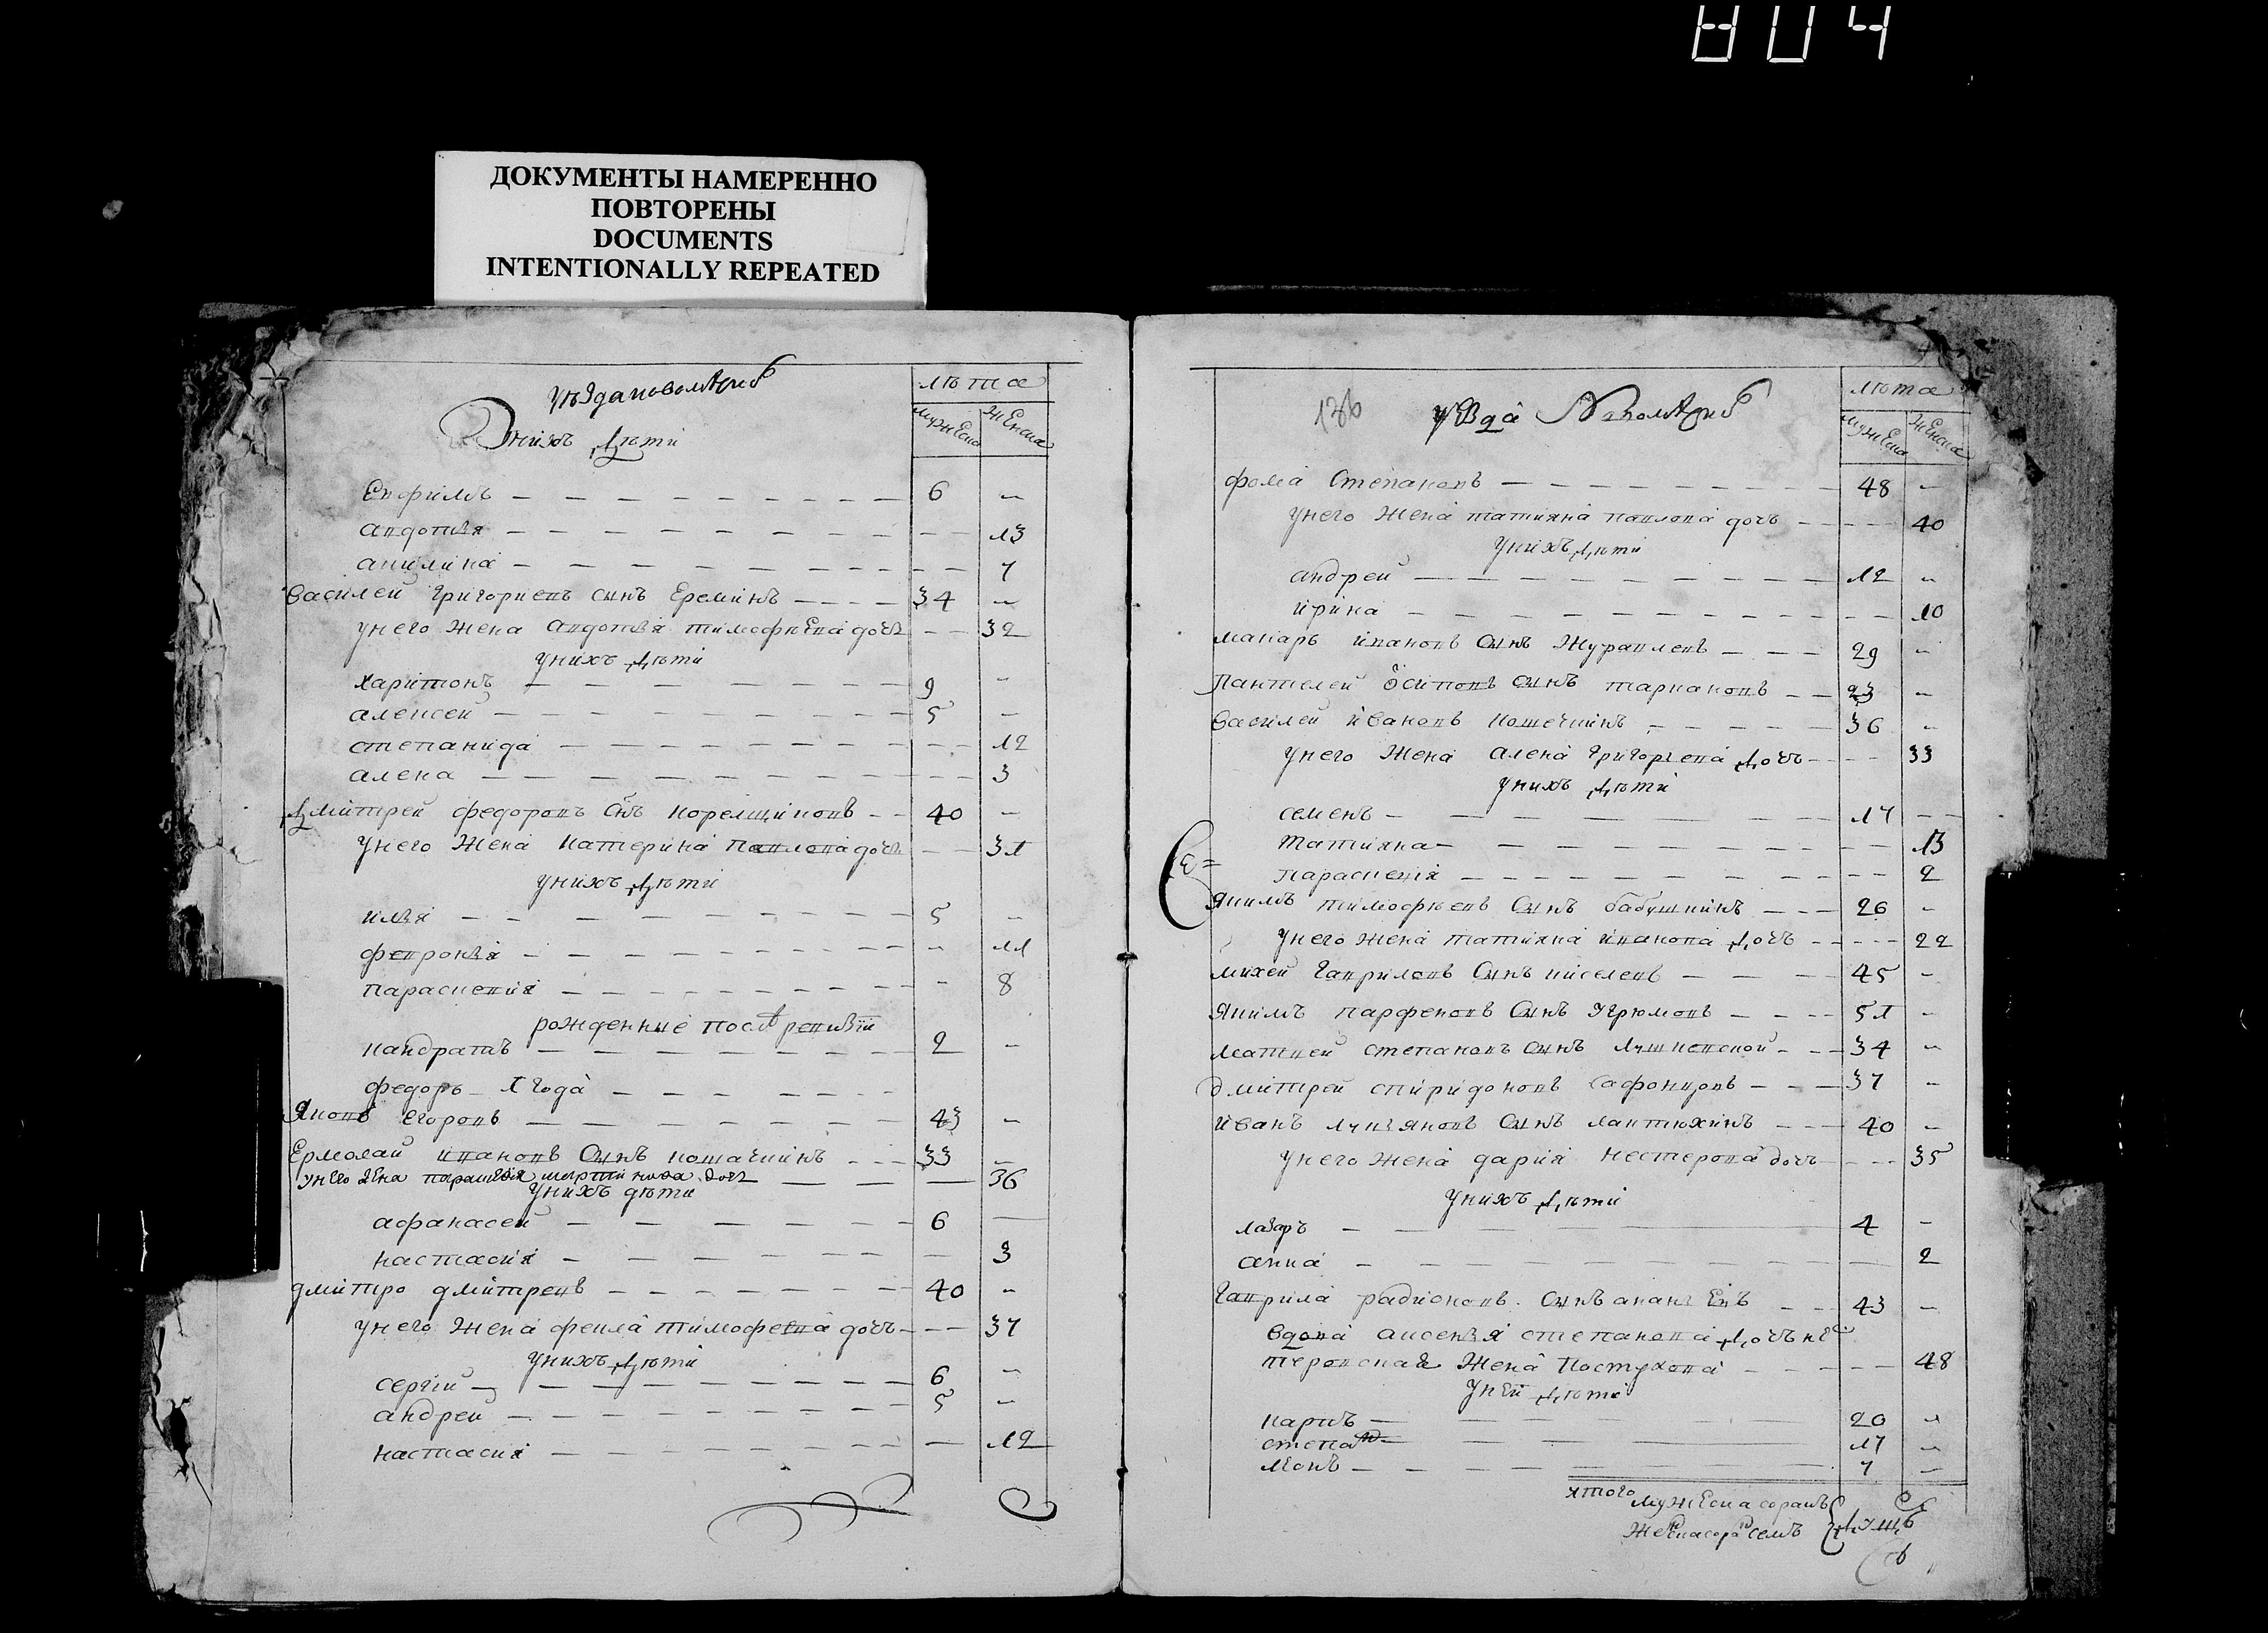 804
ДОКУМЕНТЫ НАМЕРЕННО
ПОВТОРЕНЫ
DOCUMENTS
INTENTIONALLY REPEATED
лѣта
мужеска женска
Унихъ дѣти
Евфимъ 6
авдотья 13
акилина 7
василей григориевъ сынъ Ереминъ 34
унего жена авдотья тимофѣева дочь 32
унихъ дѣти
харитонъ 9
алексей 5
степанида 12
алена 3
дмитрей федоровъ снъ корелщиковъ 40
унего жена катерина павлова дочь 31
унихъ дѣти
илья 5
февронья 11
параскевия 8
рожденные после ревизïи
кандратъ 2
федоръ 1 года
Яковъ егоровъ 43
Ермолай ивановъ сынъ кошачкинъ 33
унего жена мартинова дочь 36
унихъ дѣти
афанасей 6
настасия 3
дмитро дмитревъ 40
унего жена фекла тимофеева дочь 37
унихъ дѣти
сергïй 6
андрей 5
настасия 12
136
лѣта
мужеска женска
фома степановъ 48
унего жена татияна павлова дочь 40
унихъ дѣти
андрей 12
ирина 10
макаръ ивановъ сынъ журавлевъ 29
пантелей осиповъ сынъ таркановъ 23
василей ивановъ кошечкинъ 36
унего жена алена григорьева дочь 33
унихъ дѣти
семенъ 17
татияна 13
параскевïя 2
Якимъ тимофѣевъ сынъ бабушкинъ 26
унего жена татияна иванова дочь 22
михей гавриловъ сынъ киселевъ 45
Якимъ парфеновъ сынъ угрюмовъ 51
матвей степановъ сынъ лушневской 34
дмитрей спиридоновъ сафонцовъ 37
иванъ лукьяновъ сынъ лантюхинъ 40
унего жена дария нестерова дочь 35
унихъ дѣти
лазаръ 4
анна 2
гаврила радионовъ сынъ ананьЕвъ 43
вдова аксенья степанова дочь не
теровская жена постухова 48
уней дѣти
карпъ 20
степанъ 17
леонъ 7
итого мужеска сорокъ
женска сорокъ семъ